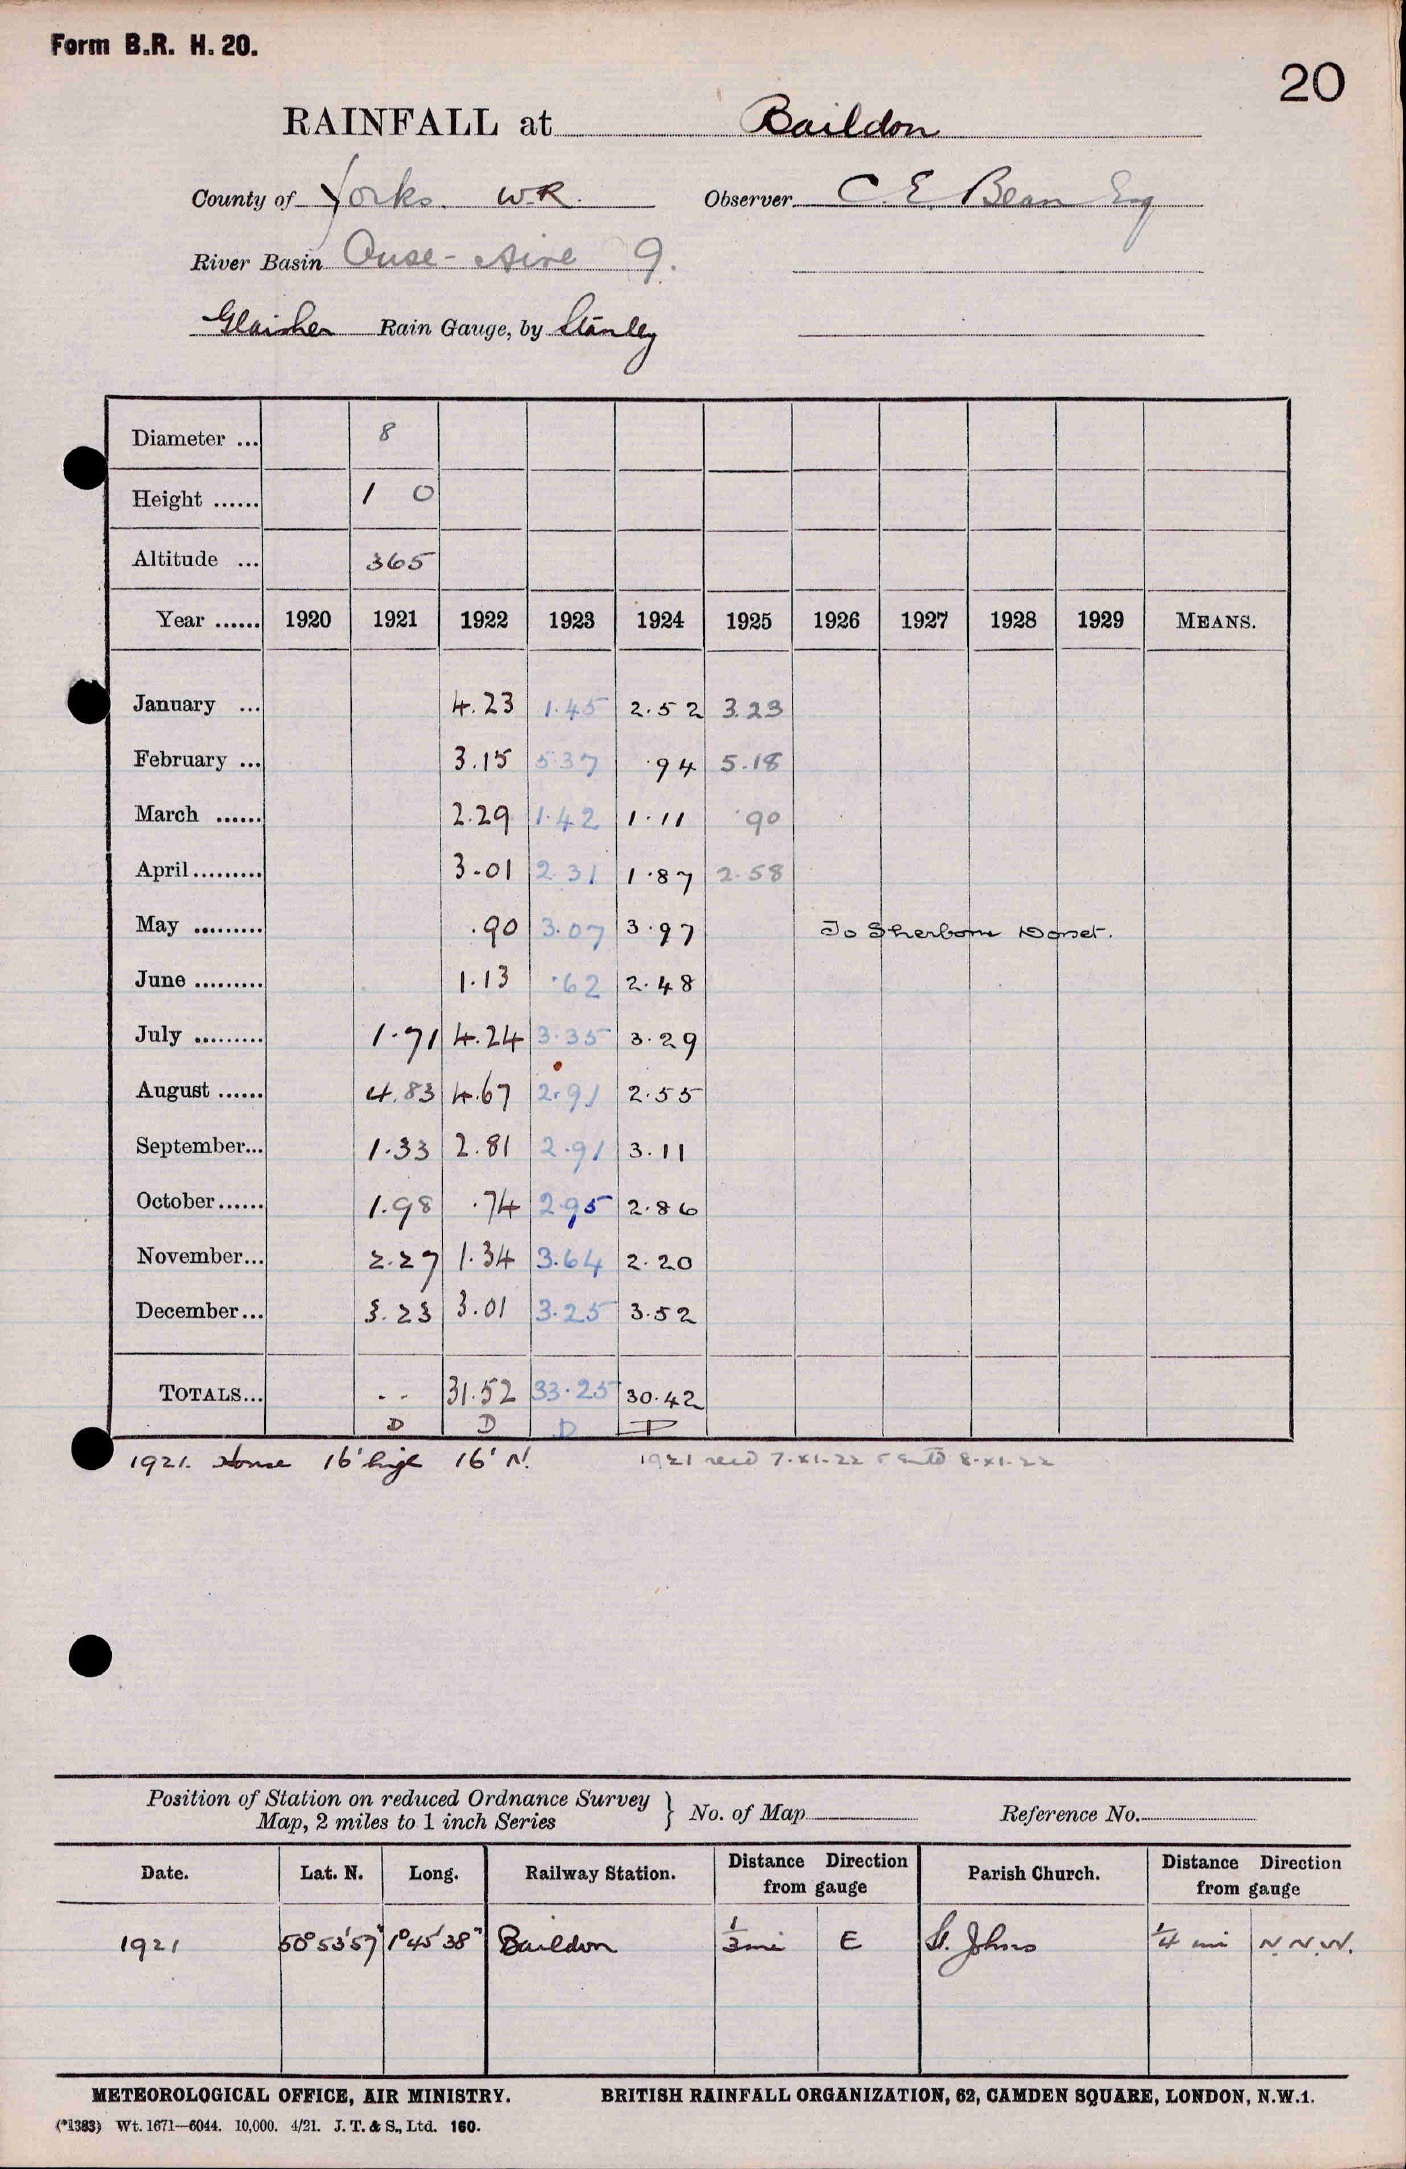 Form B.R. H. 20.
20
RAINFALL at Baildon
County of Yorks. W.R. Observer C. E. Bean Esq
River Basin Ouse - Aire 9.
Glaisher Rain Gauge, by Stanley
Diameter ... 8
Height ...... 1 0
Altitude ... 365
Year ...... 1920 1921 1922 1923 1924 1925 1926 1927 1928 1929 MEANS.
January ... 4.23 1.45 2.52 3.23
February ... 3.15 5.37 .94 5.18
March ...... 2.29 1.42 1.11 .90
April ......... 3.01 2.31 1.87 2.58
May ......... .90 3.07 3.97 To Sherborne Dorset.
June ......... 1.13 .62 2.48
July ......... 1.71 4.24 3.35 3.29
August ...... 4.83 4.67 2.91 2.55
September... 1.33 2.81 2.91 3.11
October...... 1.98 .74 2.95 2.86
November... 2.27 1.34 3.64 2.20
December... 3.23 3.01 3.25 3.52
TOTALS... - - 31.52 33.25 30.42
D D D D
1921. House 16' high 16' N. 1921 recd 7.XI.22 8.XI.22
Position of Station on reduced Ordnance Survey
Map, 2 miles to 1 inch Series } No. of Map Reference No.
Date. Lat. N. Long. Railway Station. Distance Direction from gauge Parish Church. Distance Direction from gauge
1921 50° 53' 57" 1° 45' 38" Baildon 1/3 mi E St. Johns 1/4 mi N.N.W.
METEOROLOGICAL OFFICE, AIR MINISTRY. BRITISH RAINFALL ORGANIZATION, 62, CAMDEN SQUARE, LONDON, N.W.1.
(*1383) Wt. 1671—6044. 10,000. 4/21. J. T. & S., Ltd. 160.